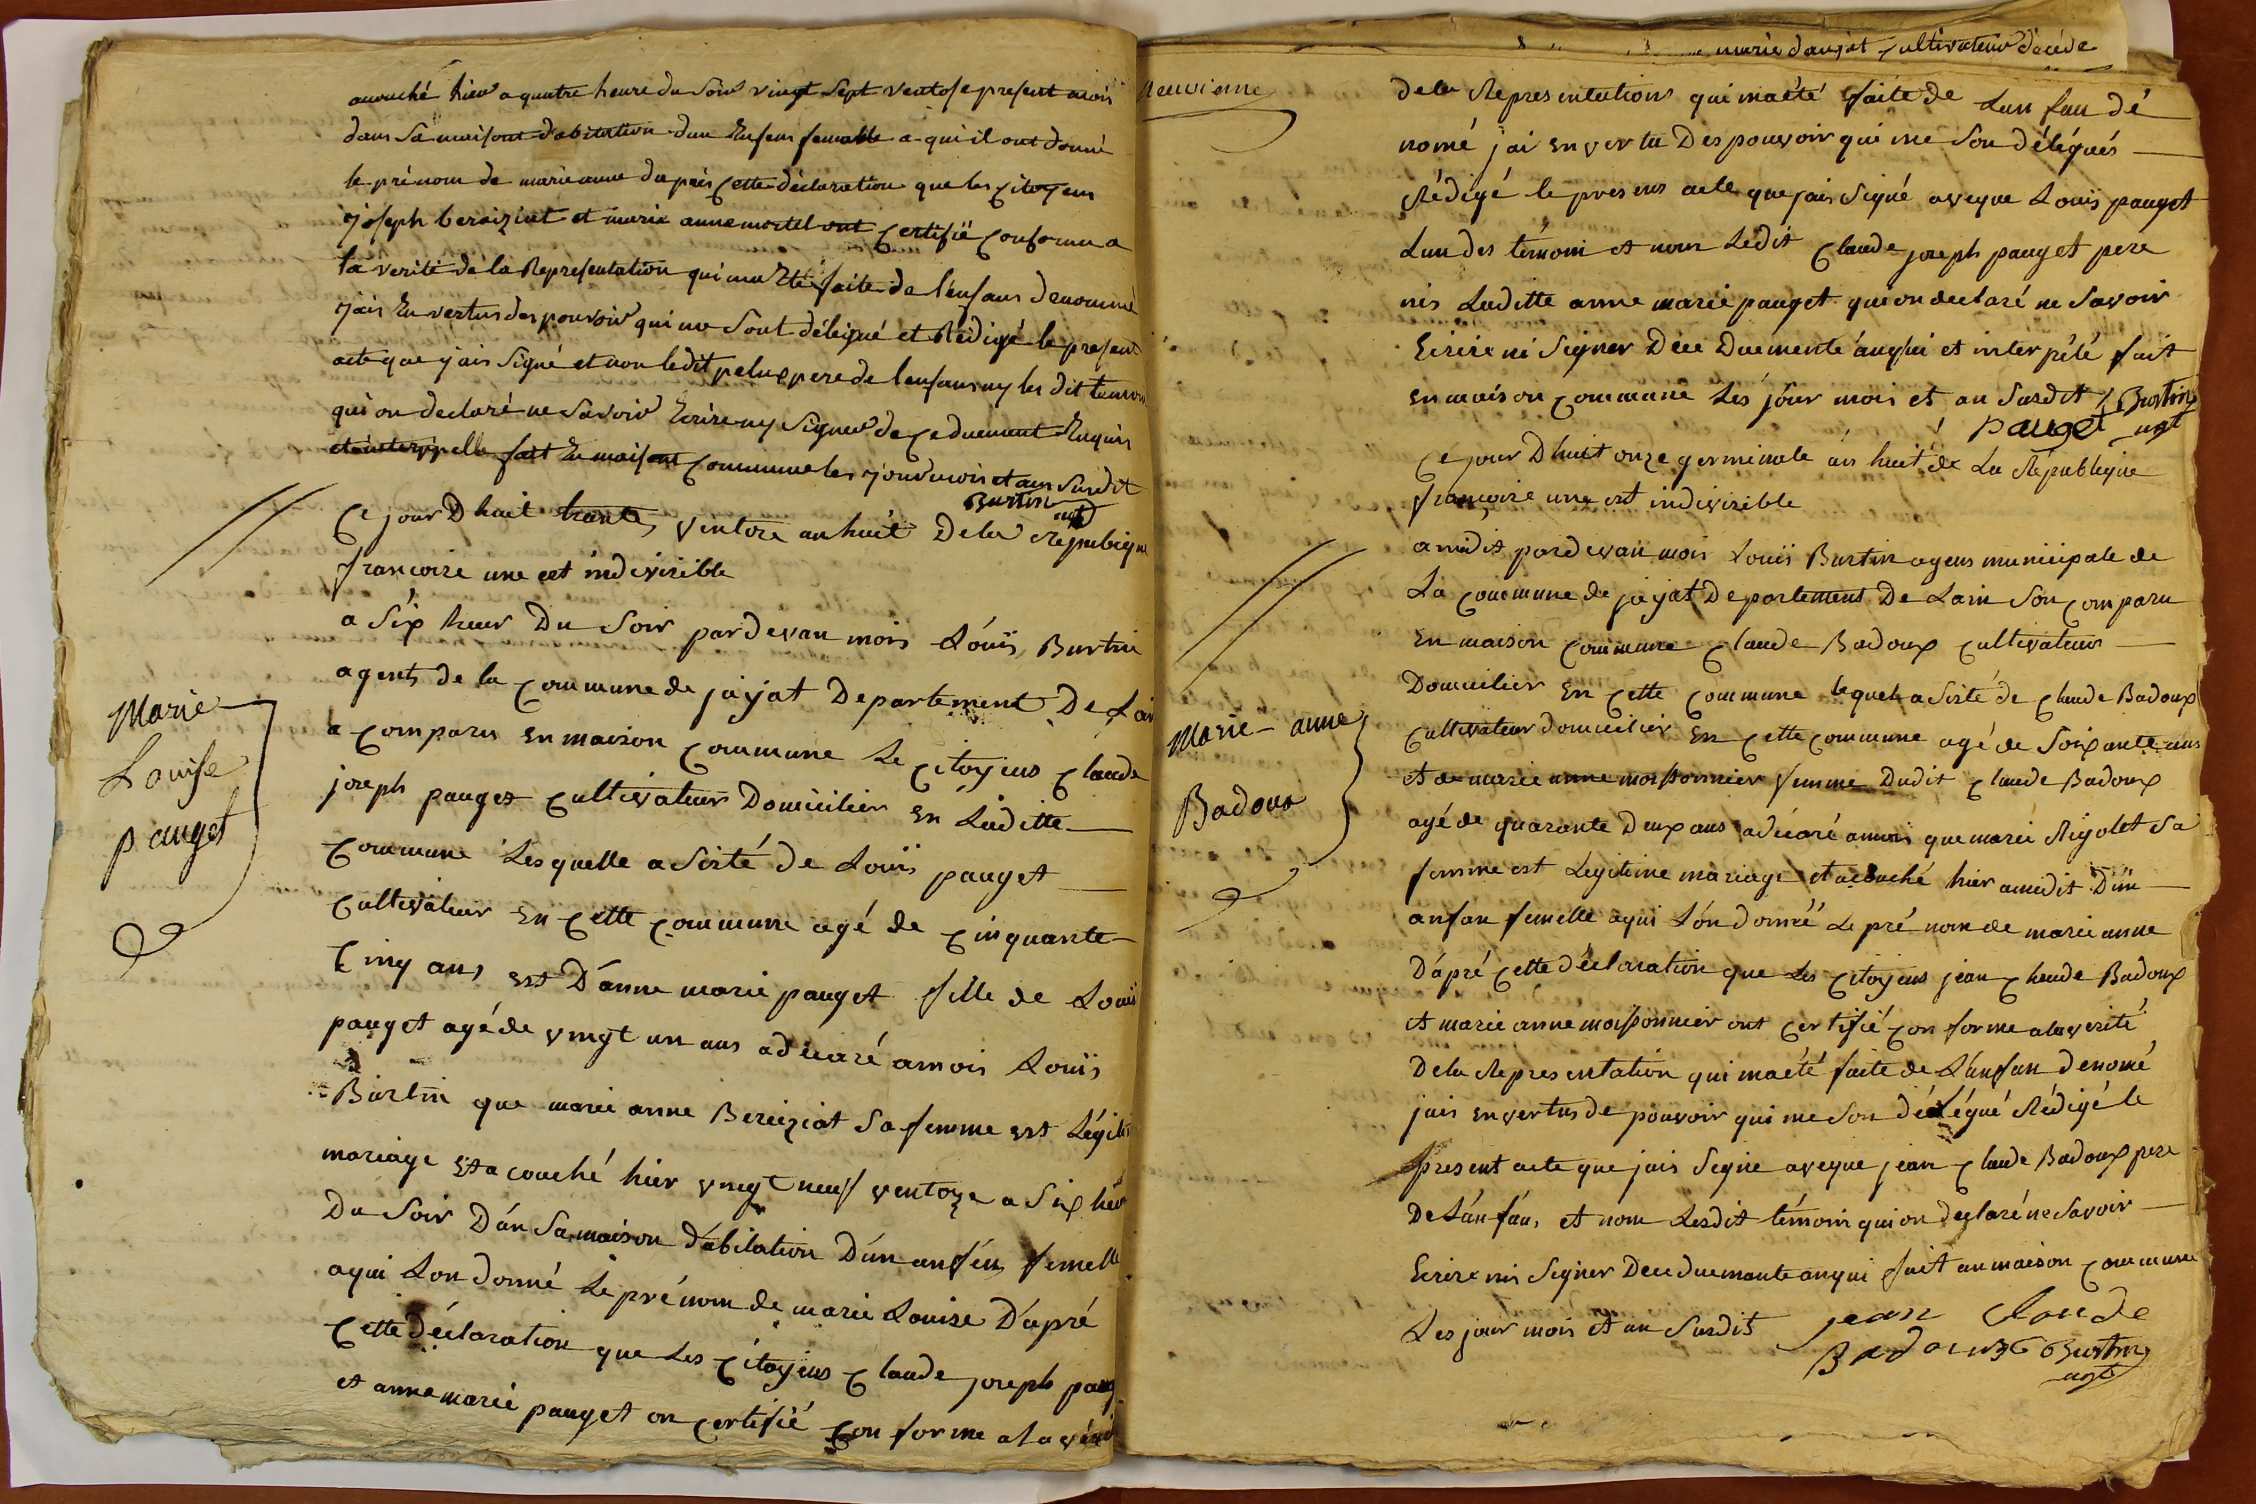 acouché hier a quatre heure du Soir vingt Sept ventose present mois
dans sa maisont d'abitation dun Enfens femable a qui il ont donné
le prénom de marieanne daprés cette déclaration que les citoyens
joseph bereiziat et marie anne mortel ont certifié conforme a
la verité de la Representation qui ma Eté faite de l'enfans denommé
j'ais En vertus des pouvoir qui me sont délégué et Rédigé le present
acte que j'ais Signé et non ledit pelux pere de lenfans ny les dit temoin
qui on declaré ne Savoir Ecrire ny Signer de ce duement Enquis
et interppellé fait En maisont commune les jour mois et ans Susdit
Burtin agt
Ce jour Dhuit trante ventoze an huit De la Republique
francoize une est indivizible
a Six heur Du Soir pardevan mois Louis Burtin
agents de la commune de jayat Departement De Lain
a comparu en maison commune Le citoyens claude
joseph pauget cultivateur Domicilier en Laditte
commune Lesquelle a Sisté de Louis pauget
Cultivateur en cette commune agé de cinquante
Cinq ans est D'anne marie pauget fille de Louis
pauget agé de vingt un ans a décaré a mois Louis
Burtin que marie anne Bereiziat Sa femme est Légitime
mariage Et acouché hier vingt neuf ventoze a Six heur
Du Soir D'an Sa maison d'abitation D'un anfén femelle
a qui Lon donné Le prénom de marie Louise D'apré
Cette déclaration que Les citoyens claude joseph paug
et anne marie pauget on certifié con forme a la vérité
Marie
Louise
pauget
Neuvienne
marie danjat cultivateur décéde
dela Representation qui maété faite de Lan fan dé
nomé j'ai en vertu Des pouvoir qui me Son délégués
Rédigé le presens acte que jais Signé aveque Louis pauget
Lun des témoin et nom Ledit claude joseph pauget pere
nis Laditte anne marie pauget qui on declaré ne Savoir
Ecrire ni Signer Dece Duemente anquis et interpélé fait
en maison commune Les jour mois et an Susdit Burtin
pauget agt
Ce jour Dhuit onze germinale an huit de La République
francoize une est indivizible
a midit pardevan mois Louis Burtin agens municipale de
La commune de jayat Departement De Lain Son comparu
en maison commune claude Badoux cultivateur
Domicilier en cette commune lequel a Sisté de claude Badoux
Cultivateur domicilier en cette commune agé de Soixante ans
et de marie anne moissonnier femme Dudit claude Badoux
agé de quarante Deux ans a décaré a mois que marie Rigolet Sa
femme est Légitime mariage et acouché hier a midit D'un
anfan femelle a qui L'on donné Le pré nom de marie anne
D'apré cette déclaration que Les citoyens jean claude Badoux
et marie anne moissonnier ont certifié con forme a la verité
De la Representation qui maété faite de L'anfan dénomé
jais en vertus de pouvoir qui me Son délégué Rédigé le
present acte que jais Signé aveque jean claude Badoux pere
De L'anfan, et nom Lesdit témoin qui on declaré ne Savoir
Ecrire nis Signer Dece duemante anqui fait an maison commune
Les jour mois et an Susdit jean Claude
Badoux Burtin
agt
Marie-anne
Badoux